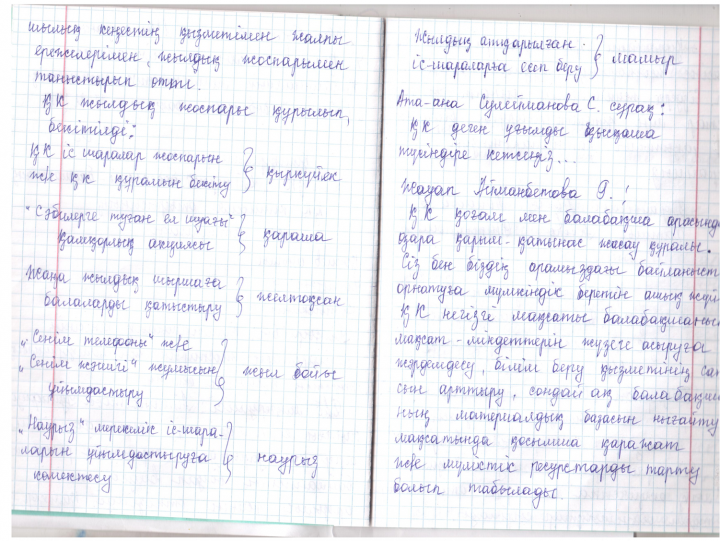 шылық кеңестің қызметімен жалпы
ережелерімен, жылдық жоспарымен
таныстырып өтті.
ҚК жылдық жоспары құрылып,
бекітілді:
ҚК іс шаралар жоспарын
және ҚК құрамын бекіту } қыркүйек
"Сәбилерге туған ел шуағы"
қамқорлық акциясы } қараша
Жаңа жылдық шыршаға
балаларды қатыстыру } желтоқсан
"Сенім телефоны" және
"Сенім жәшігі" жұмысын
ұйымдастыру } жыл бойы
"Наурыз" мерекелік іс-шара-
ларын ұйымдастыруға
көмектесу } наурыз
Жылдық атқарылған
іс-шараларға есеп беру } мамыр
Ата-ана Сулейманова С. сұрақ:
ҚК деген ұғымды қысқаша
түсіндіре кетсеңіз...
Жауап Айманбетова Г.:
ҚК қоғам мен балабақша арасында
өзара қарым-қатынас жасау құралы.
Сіз бен біздің арамыздағы байланысты
орнатуға мүмкіндік беретін ашық жүй
ҚК негізгі мақсаты балабақшаның
мақсат-міндеттерін жүзеге асыруға
жәрдемдесу, білім беру қызметінің сап
сын арттыру, сондай ақ балабақша
ның материалдық базасын нығайту
мақсатында қосымша қаражат
және мүліктік ресурстарды тарту
болып табылады.